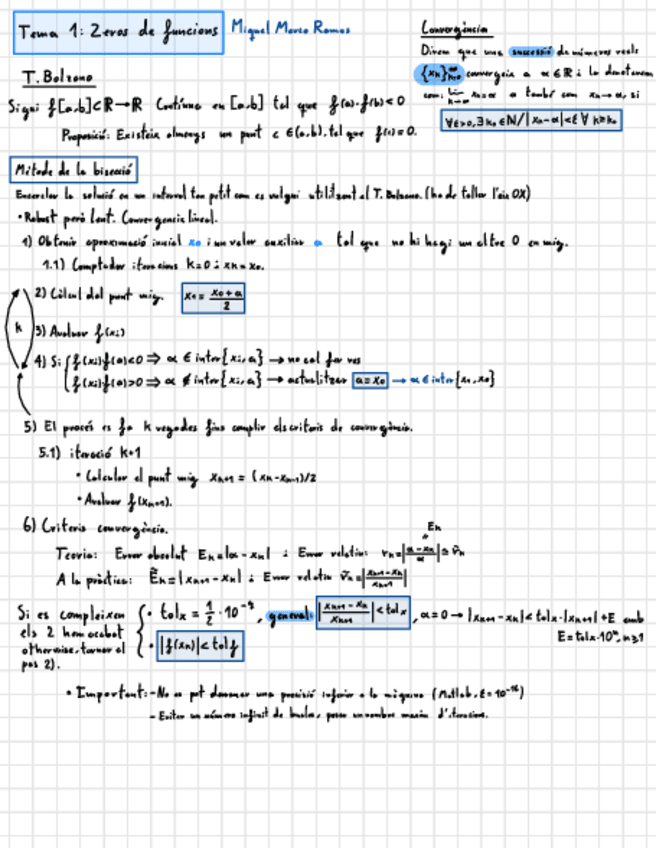 Tema 1: Zeros de funcions Miguel Marco Ramos
Convergència
Direm que una successió de números reals
{xₙ}ₙ₌₀^∞ convergeix a α ∈ ℝ i la denotarem
com: lim xₙ = α o també com xₙ → α, si
∀ε>0, ∃ k₀ ∈ ℕ / |xₙ-α| < ε ∀ k≥k₀
T. Bolzano
Sigui f[a,b]⊂ℝ→ℝ Contínua en [a,b] tal que f(a)·f(b)<0
Proposició: Existeix almenys un punt c ∈(a,b), tal que f(c)=0.
Mètode de la bisecció
Encerclar la solució en un interval tan petit com es vulgui utilitzant el T. Bolzano. (ha de tallar l'eix OX)
• Robust però lent. Convergència lineal.
1) Obtenir aproximació inicial x₀ i un valor auxiliar a tal que no hi hagi un altre 0 en mig.
1.1) Comptador iteracions k=0 i xₖ=x₀.
2) Càlcul del punt mig. x₀ = (x₀+a)/2
k
3) Avaluar f(xᵢ)
4) Si: { f(xᵢ)f(a)<0 ⇒ α ∈ inter{xᵢ,a} → no cal fer res
f(xᵢ)f(a)>0 ⇒ α ∉ inter{xᵢ,a} → actualitzar a=x₀ → α ∈ inter{x₁,x₀}
5) El procés es fa k vegades fins complir els criteris de convergència.
5.1) iteració k+1
• Calcular el punt mig xₖ₊₁ = (xₖ-xₖ₋₁)/2
• Avaluar f(xₖ₊₁).
6) Criteris convergència.
Eₖ
Teoria: Error absolut Eₖ=|α-xₖ| i Error relatiu: rₖ=|(α-xₖ)/α| ≅ r̃ₖ
A la pràctica: Ẽₖ=|xₖ₊₁-xₖ| i Error relatiu r̃ₖ=|(xₖ₊₁-xₖ)/xₖ₊₁|
Si es compleixen { • tolₓ = 1/2 · 10⁻⁹, general: |(xₖ₊₁-xₖ)/xₖ₊₁| < tolₓ, α=0 → |xₖ₊₁-xₖ| < tolₓ·|xₖ₊₁|+E amb
els 2 hem acabat E=tolₓ·10ⁿ, n≥1
otherwise, tornar al • |f(xₖ)| < tolf
pas 2).
• Important: - No es pot demanar una precisió inferior a la màquina (Matlab, ε = 10⁻¹⁶)
- Evitar un número infinit de bucles, posar un nombre màxim d'iteracions.